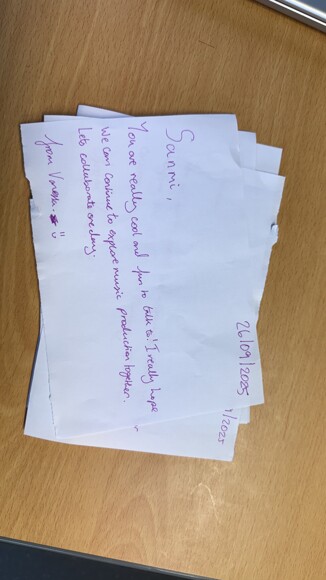 26/09/2025
Sanmi,
You are really cool and fun to talk to! I really hope
We can continue to explore music production together.
Lets collaborate one day.
from Vanessa
/2025